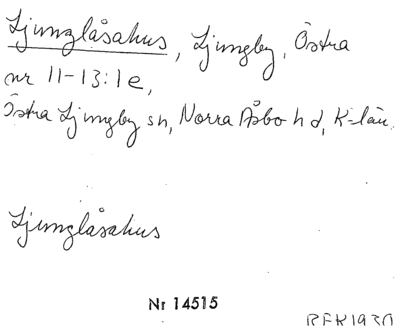 Ljunglåsahus, Ljungby, Östra
nr 11-13:1e,
Östra Ljungby sn, Norra Åsbo hd, K-län.
Ljunglåsahus
Nr 14515